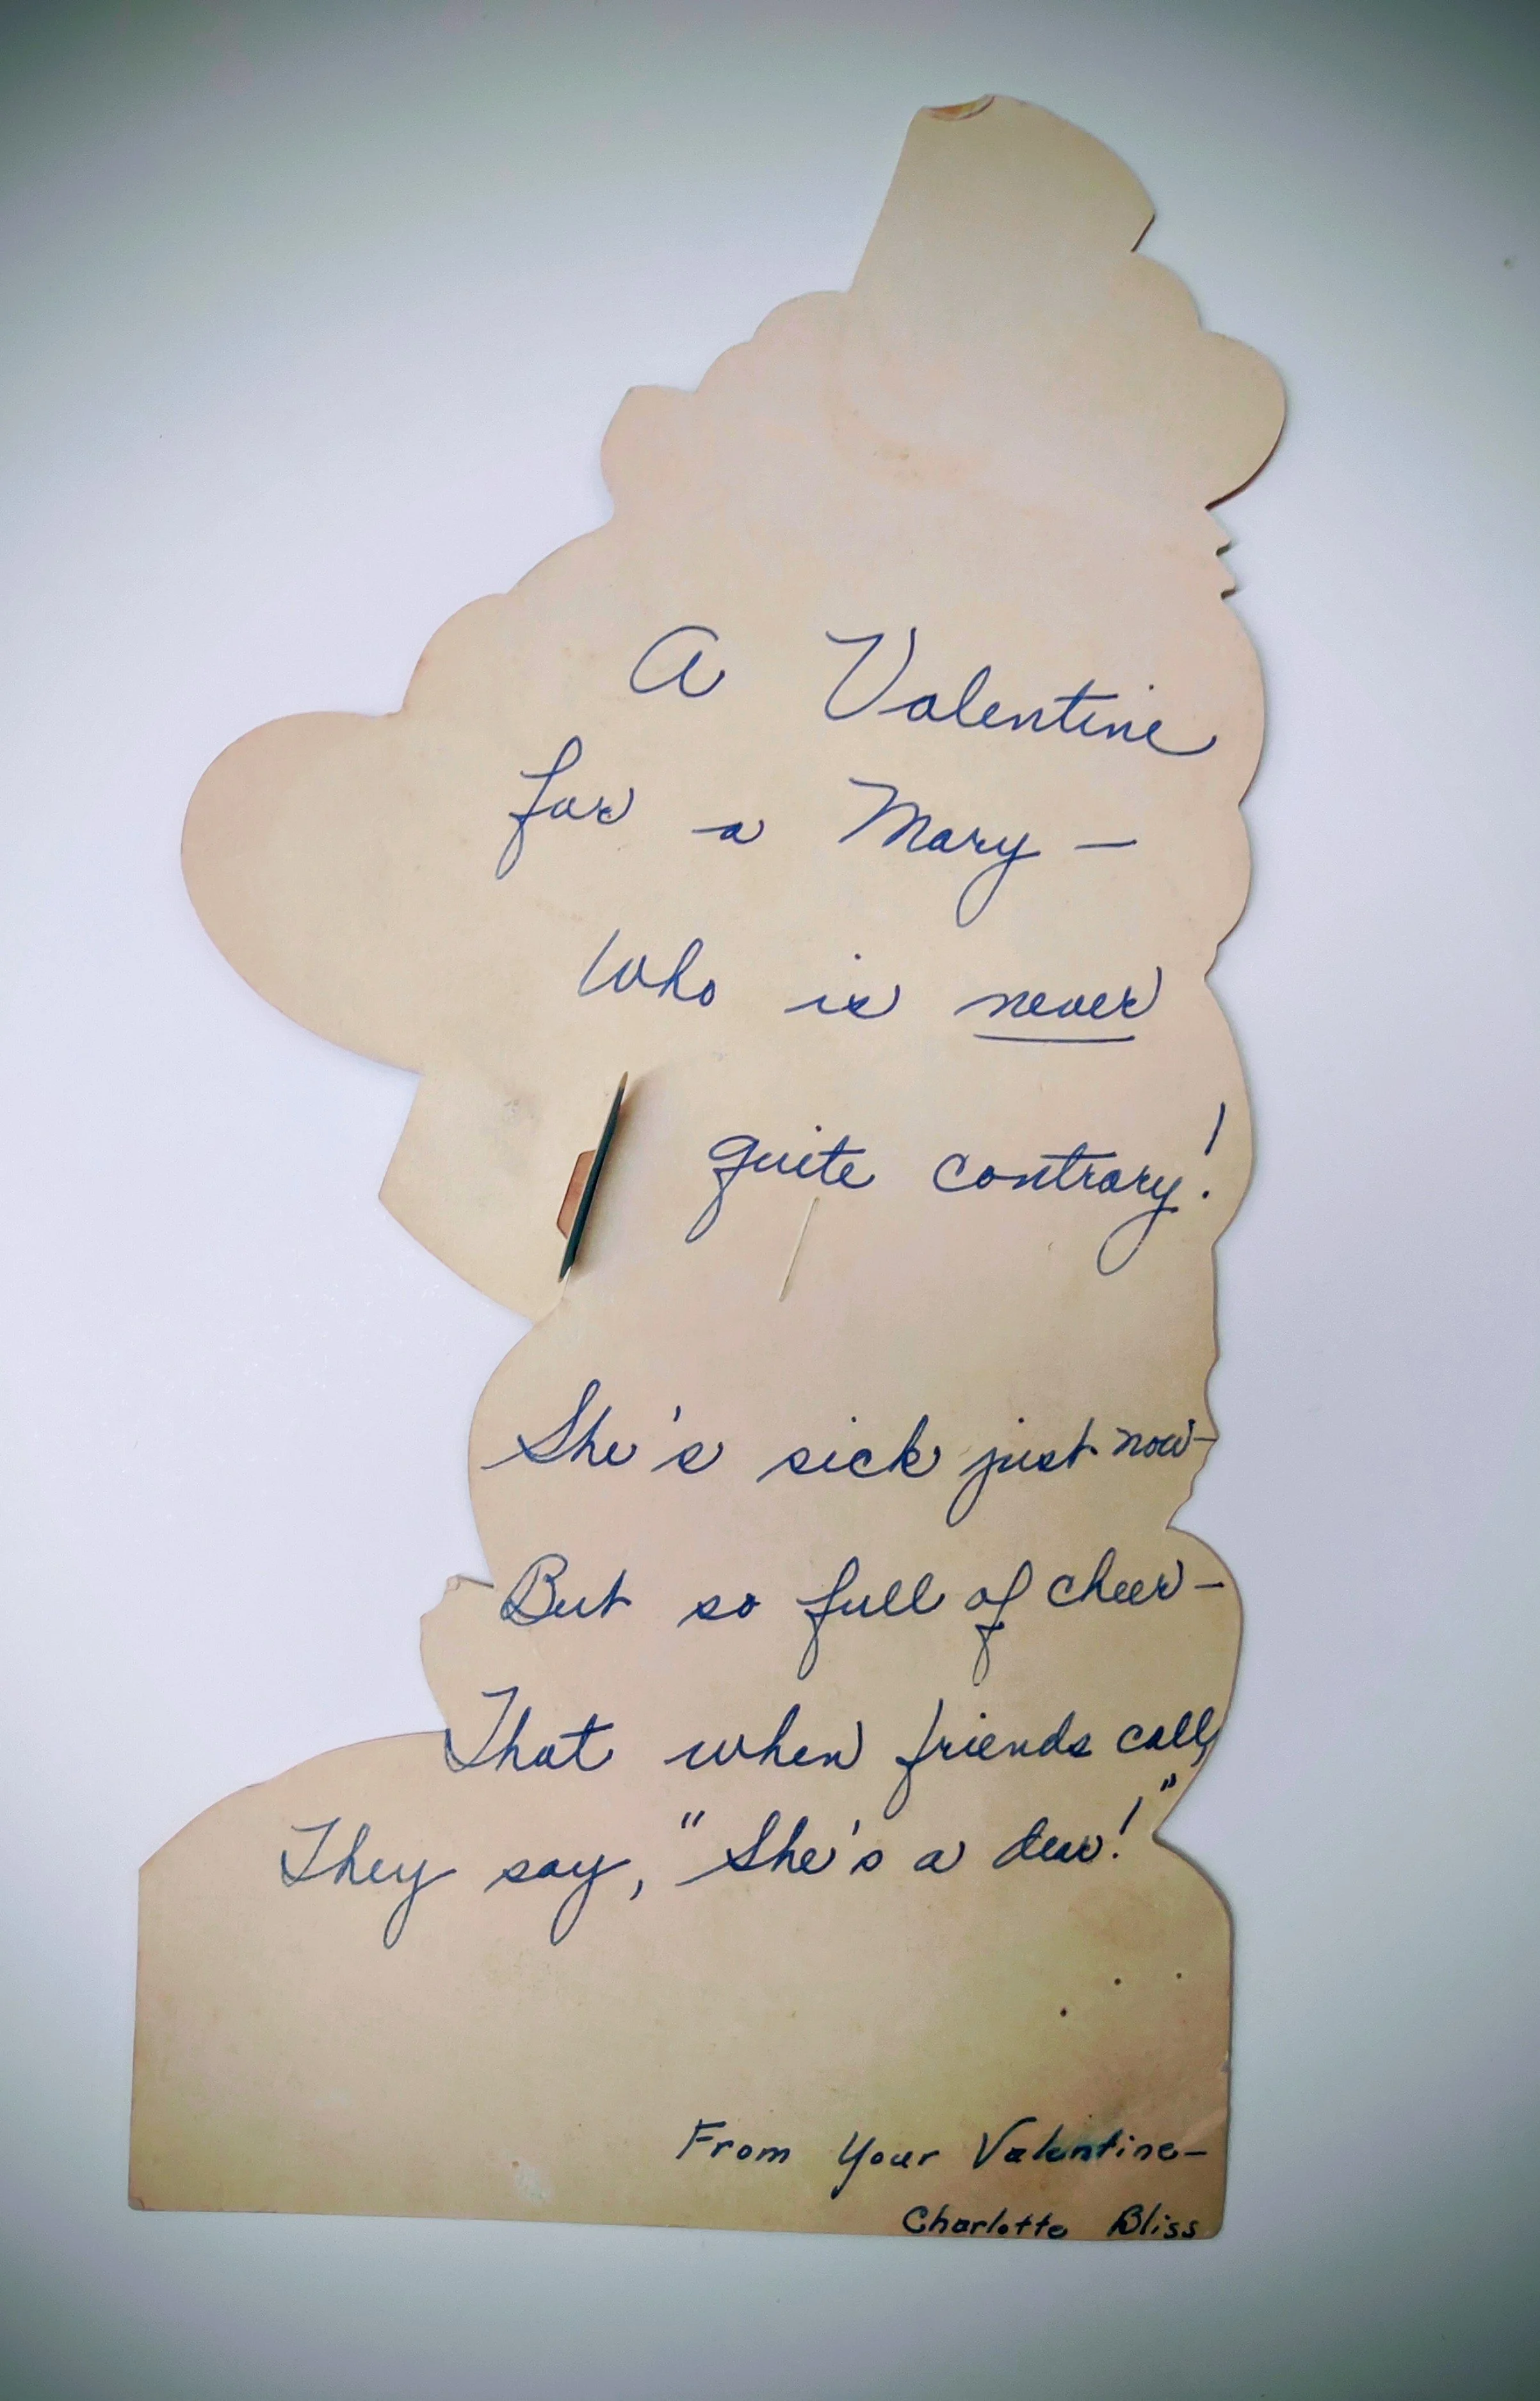 A Valentine
for a Mary —
Who is never
quite contrary!
She's sick just now —
But so full of cheer —
That when friends call,
They say, "She's a dear!"
From Your Valentine —
Charlotte Bliss